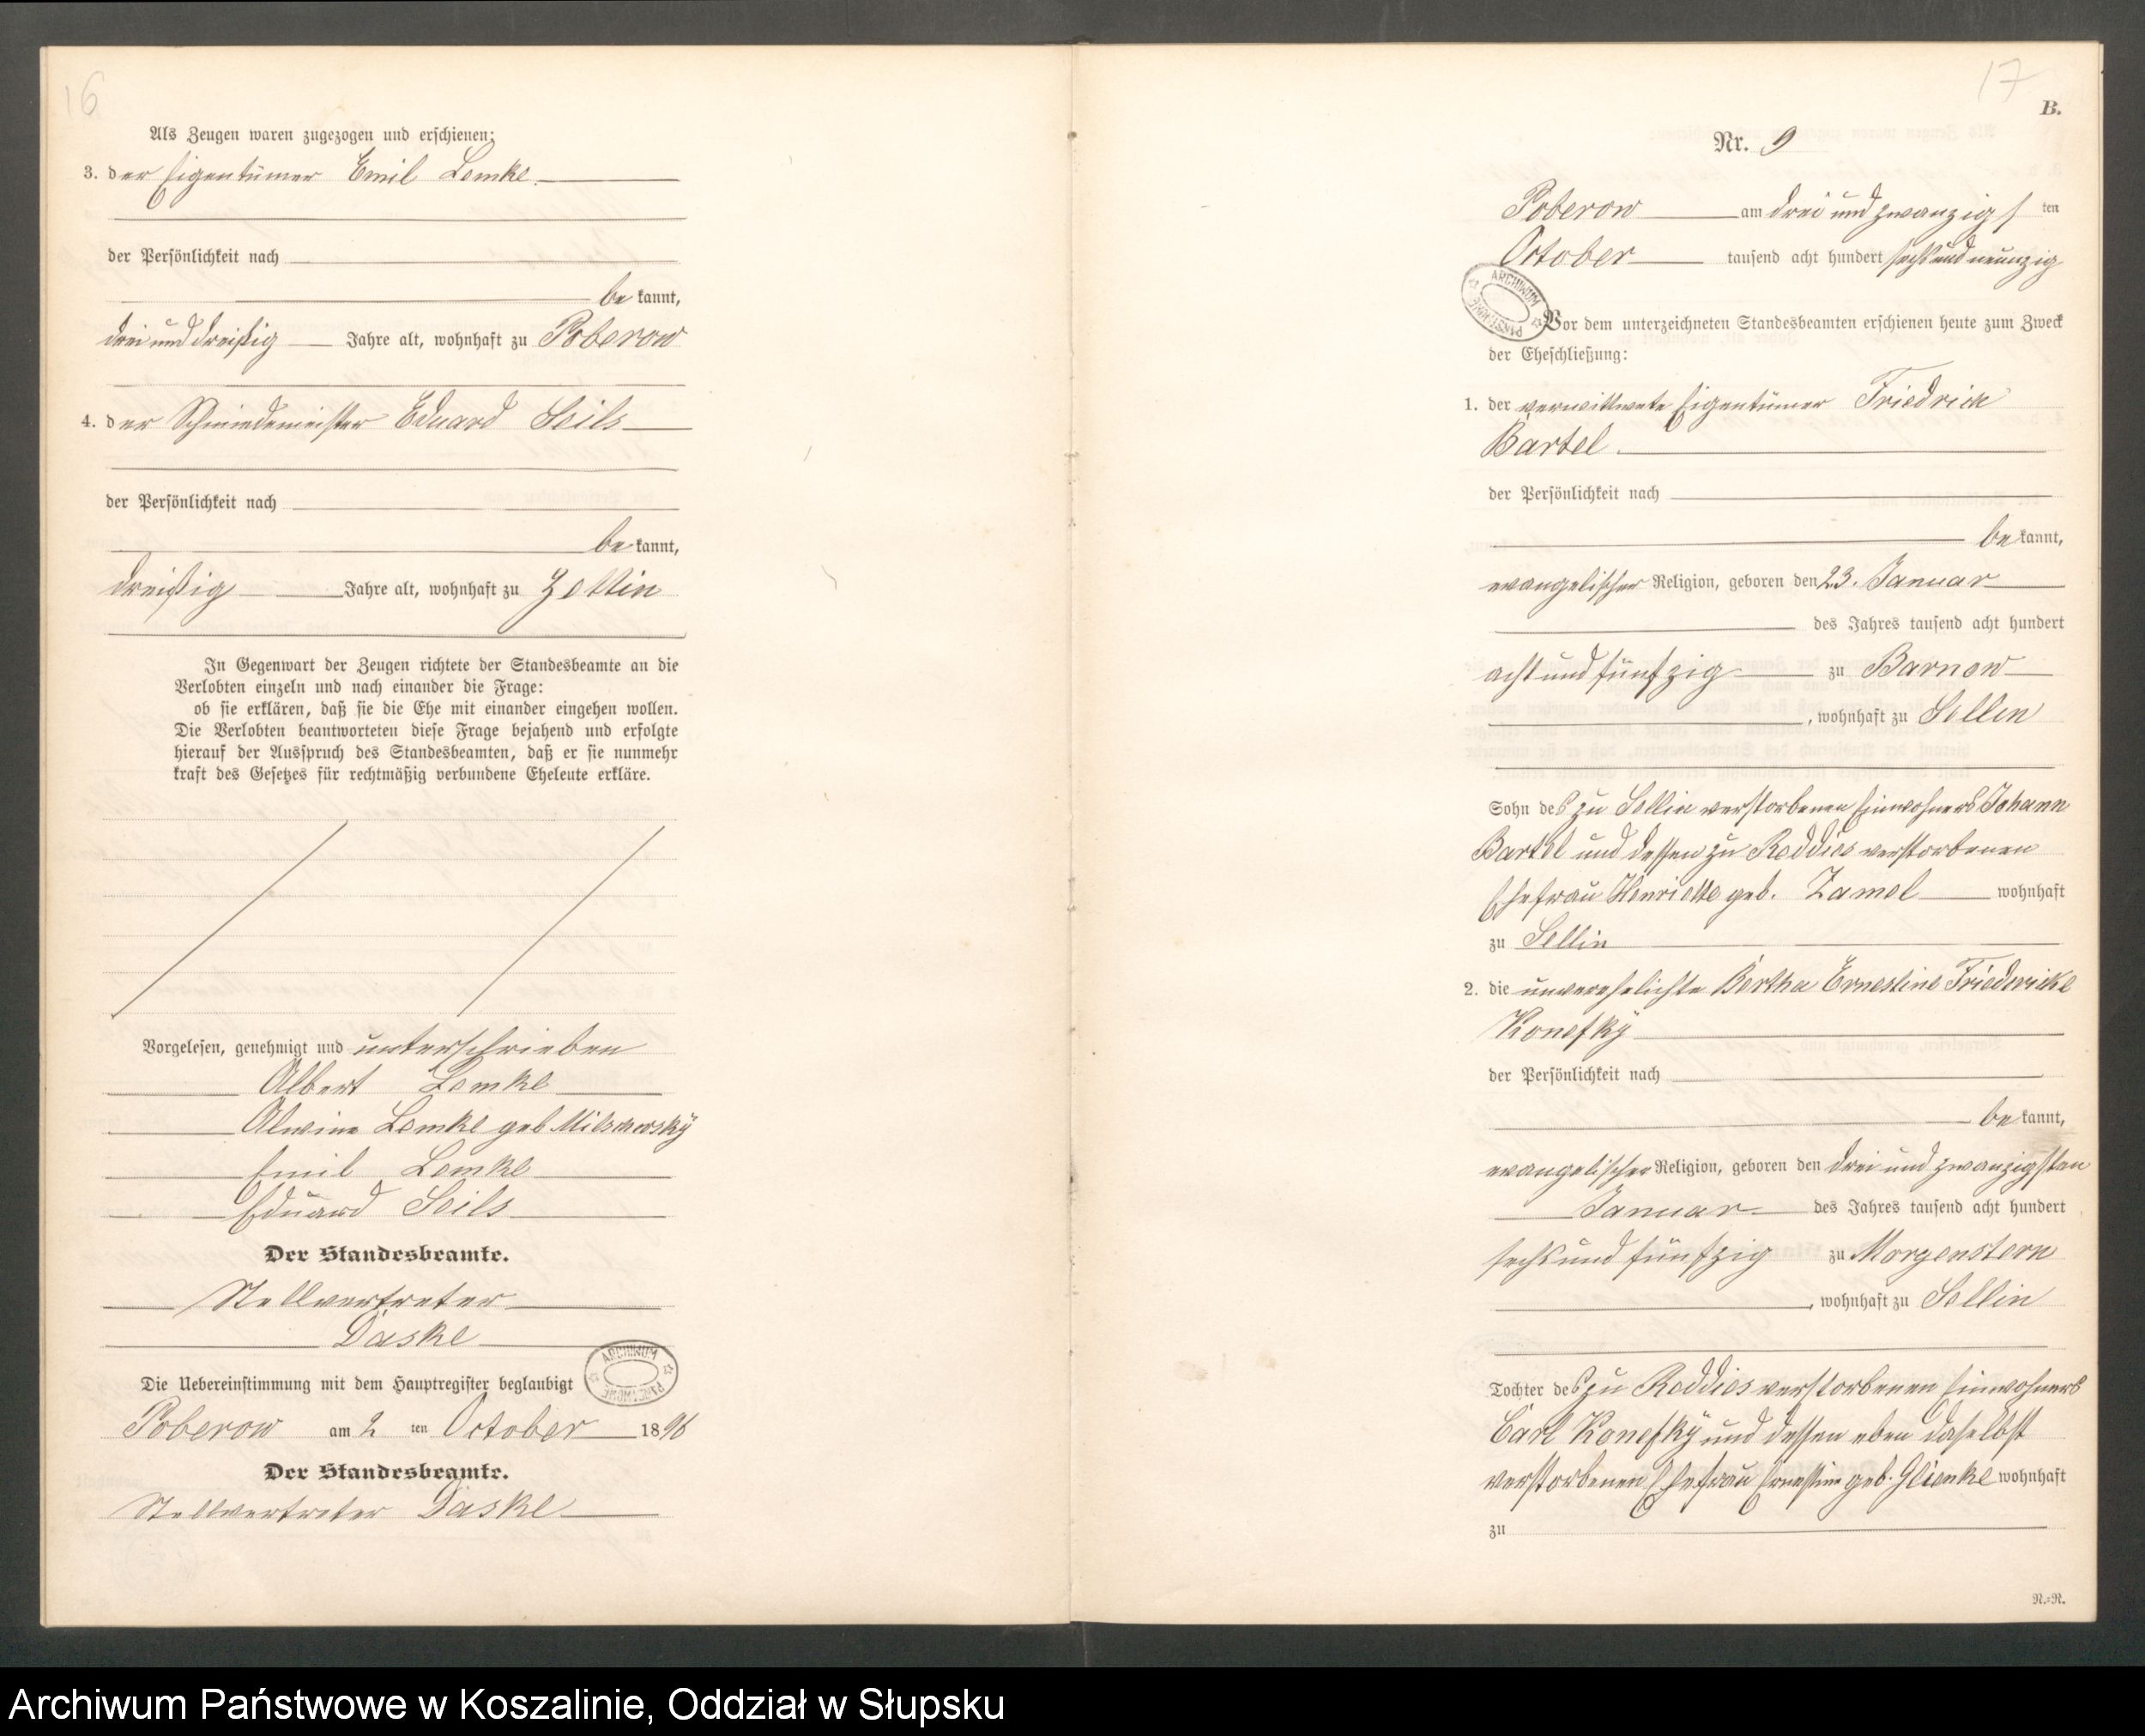 16
Als Zeugen waren zugezogen und erschienen:
3. der Eigentümer Emil Lemke.
der Persönlichkeit nach
be kannt,
drei und dreißig Jahre alt, wohnhaft zu Poberow
4. der Schmiedemeister Eduard Seils
der Persönlichkeit nach
be kannt,
dreißig Jahre alt, wohnhaft zu Zettin
In Gegenwart der Zeugen richtete der Standesbeamte an die
Verlobten einzeln und nach einander die Frage:
ob sie erklären, daß sie die Ehe mit einander eingehen wollen.
Die Verlobten beantworteten diese Frage bejahend und erfolgte
hierauf der Ausspruch des Standesbeamten, daß er sie nunmehr
kraft des Gesetzes für rechtmäßig verbundene Eheleute erkläre.
Vorgelesen, genehmigt und unterschrieben
Albert Lemke
Alwine Lemke geb
Emil Lemke
Eduard Seils
Der Standesbeamte.
Stellvertreter
Daske
Die Uebereinstimmung mit dem Hauptregister beglaubigt
ARCHIWUM PAŃSTWOWE
Poberow am 2 ten October 1896
Der Standesbeamte.
Stellvertreter Daske
17
B.
Nr. 9
Poberow am drei und zwanzigs ten
October tausend acht hundert sechs und neunzig
ARCHIWUM PAŃSTWOWE
Vor dem unterzeichneten Standesbeamten erschienen heute zum Zweck
der Eheschließung:
1. der verwittwete Eigentümer Friedrich
Bartel.
der Persönlichkeit nach
be kannt,
evangelischer Religion, geboren den 23. Januar
des Jahres tausend acht hundert
acht und fünfzig zu Barnow
, wohnhaft zu Sellin
Sohn des zu Sellin verstorbenen Einwohners Johann
Bartel und dessen zu Reddies verstorbenen
Ehefrau Henriette geb. Zamel wohnhaft
zu Sellin
2. die unverehelichte Bertha Ernestine Friedericke
Konefky
der Persönlichkeit nach
be kannt,
evangelischer Religion, geboren den drei und zwanzigsten
Januar des Jahres tausend acht hundert
sechs und fünfzig zu Morgenstern
, wohnhaft zu Sellin
Tochter des zu Reddies verstorbenen Einwohners
Carl Konefky und dessen eben daselbst
verstorbenen Ehefrau Ernestine geb. Glienke wohnhaft
zu
N.=N.
Archiwum Państwowe w Koszalinie, Oddział w Słupsku